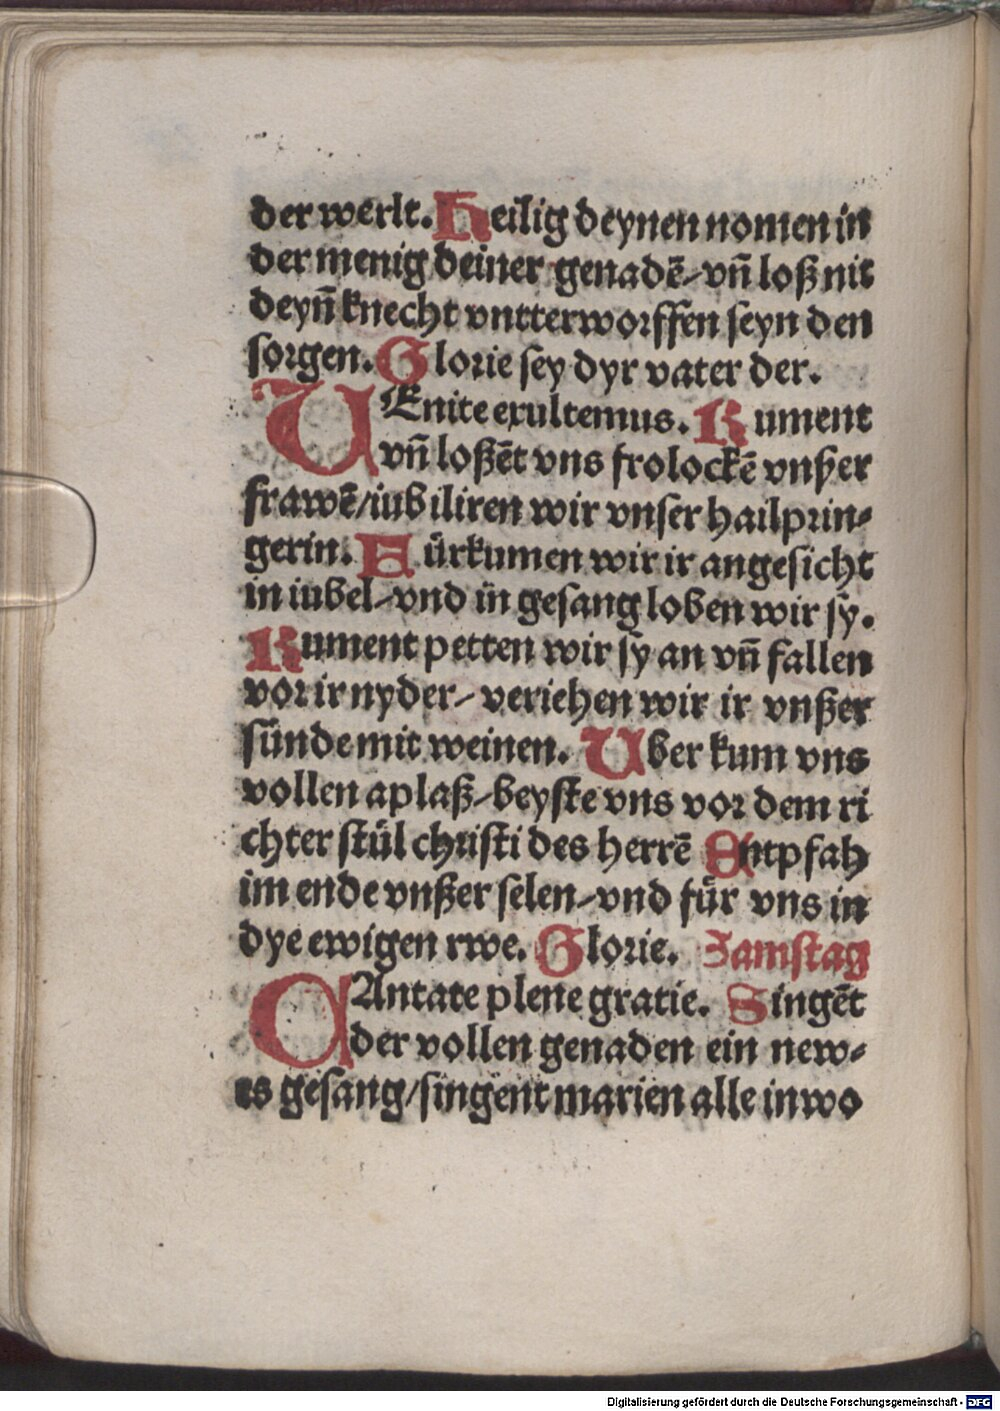 der werlt. Heilig deynen nomen in
der menig deiner genadē/vn̄ loß nit
deyn̄ knecht vntterworffen seyn den
sorgen. Glorie sey dyr vater der.
VEnite exultemus. Kument
vn̄ loßēt vns frolockē vnßer
frawē/iubiliren wir vnser hailprin-
gerin. Fürkumen wir ir angesicht
in iubel/vnd in gesang loben wir sy.
Kument petten wir sy an vn̄ fallen
vor ir nyder/ veriehen wir ir vnßer
sünde mit weinen. Vber kum vns
vollen aplaß/beyste vns vor dem ri
chter stůl christi des herrē Entpfah
im ende vnßer selen/vnd für vns in
dye ewigen rwe. Glorie. Samstag
CAntate plene gratie. Singēt
der vollen genaden ein new-
es gesang/singent marien alle inwo
Digitalisierung gefördert durch die Deutsche Forschungsgemeinschaft - DFG